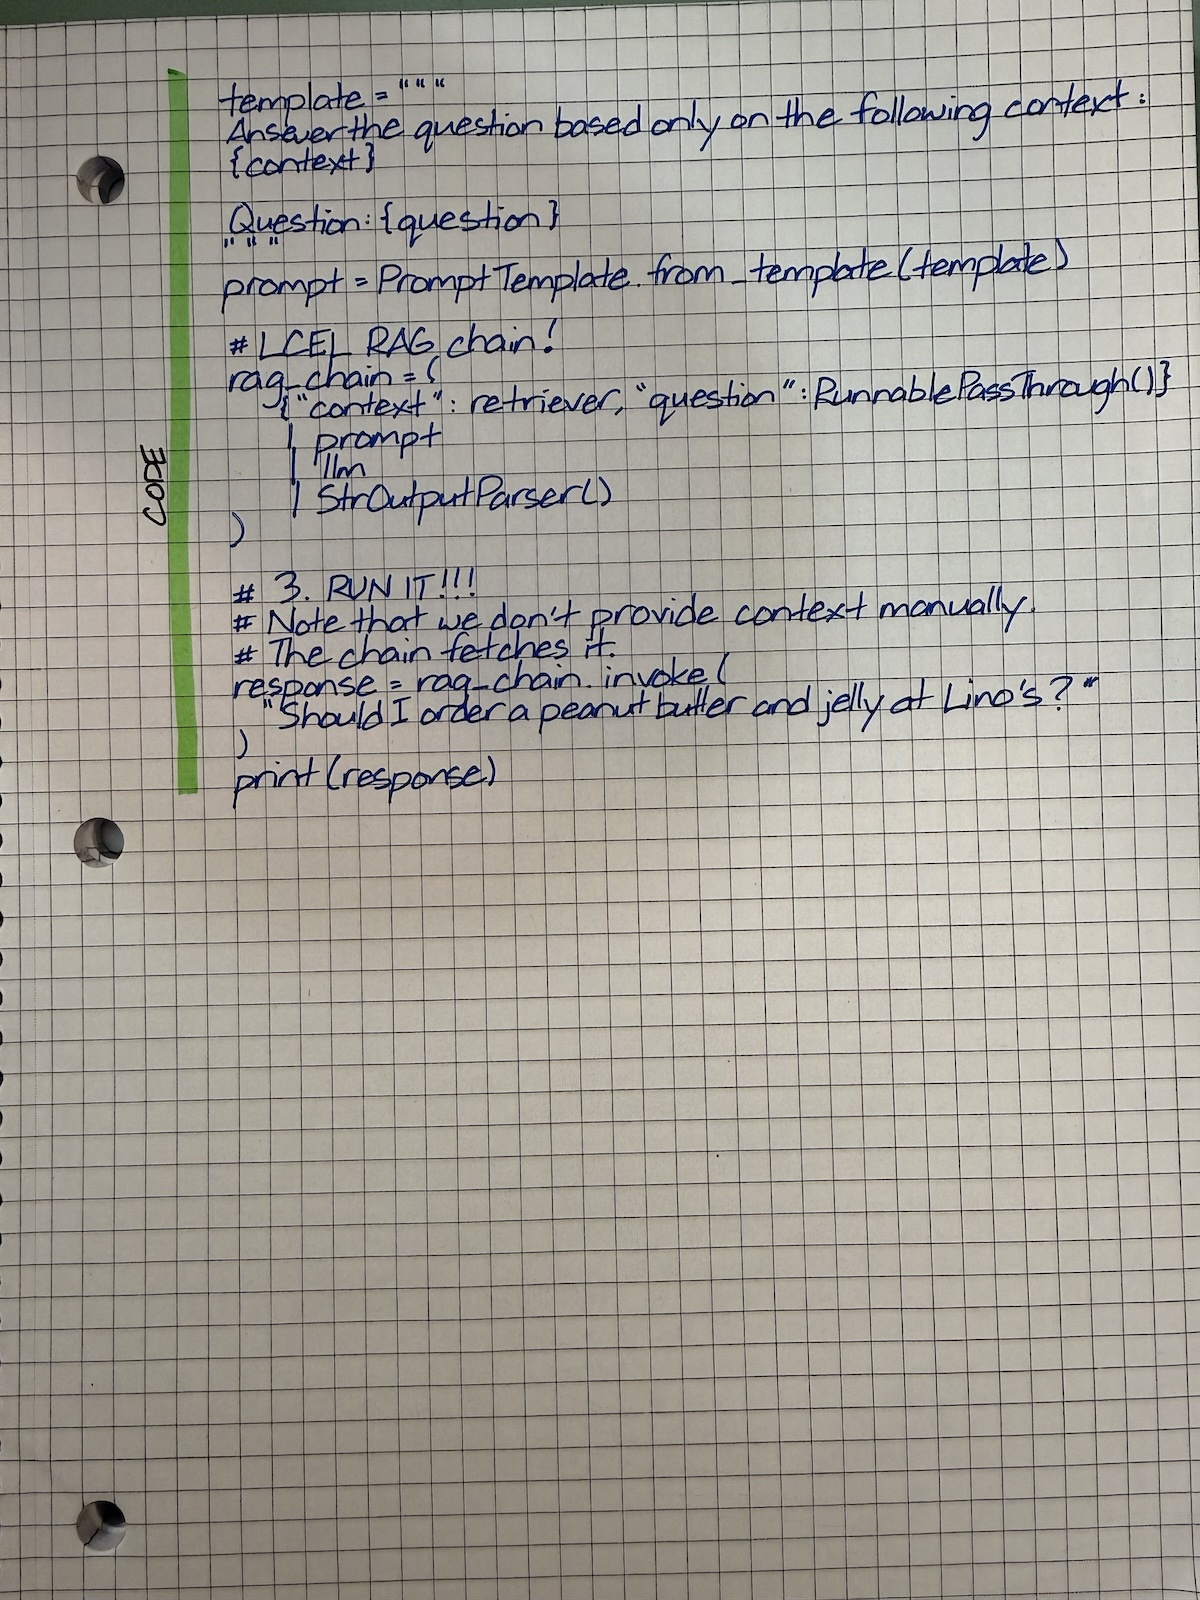 template = """
Answer the question based only on the following context:
{context}
Question: {question}
"""
prompt = PromptTemplate.from_template(template)
# LCEL RAG chain!
rag_chain = (
{"context": retriever, "question": RunnablePassThrough()}
| prompt
| llm
| StrOutputParser()
)
CODE
# 3. RUN IT!!!
# Note that we don't provide context manually.
# The chain fetches it.
response = rag_chain.invoke(
"Should I order a peanut butter and jelly at Lino's?"
)
print(response)